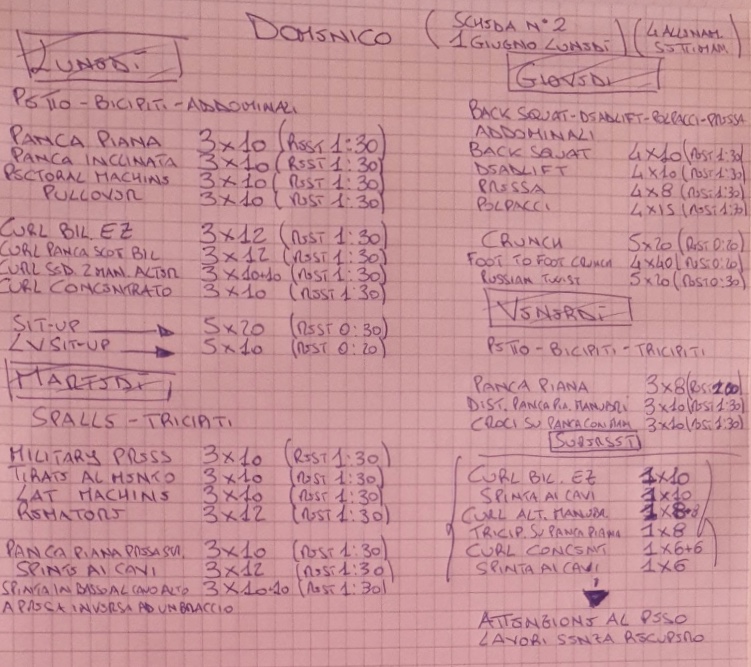 DOMENICO
(SCHEDA N°2
1 GIUGNO LUNEDI)
(4 ALLENAM.
SETTIMAN)
LUNEDI
PETTO - BICIPITI - ADDOMINALI
PANCA PIANA 3x10 (REST 1:30)
PANCA INCLINATA 3x10 (REST 1:30)
PECTORAL MACHINE 3x10 (REST 1:30)
PULLOVER 3x10 (REST 1:30)
CURL BIL. EZ 3x12 (REST 1:30)
CURL PANCA SCOT BIL 3x12 (REST 1:30)
CURL SED. 2 MAN. ALTER 3x10+10 (REST 1:30)
CURL CONCENTRATO 3x10 (REST 1:30)
SIT-UP → 5x20 (REST 0:30)
LV SIT-UP → 5x10 (REST 0:20)
MARTEDI
SPALLE - TRICIPITI
MILITARY PRESS 3x10 (REST 1:30)
TIRATE AL MENTO 3x10 (REST 1:30)
LAT MACHINE 3x10 (REST 1:30)
REMATORE 3x12 (REST 1:30)
PANCA PIANA PRESA SU. 3x10 (REST 1:30)
SPINTE AI CAVI 3x12 (REST 1:30)
SPINTA IN BASSO AL CAVO ALTO 3x10+10 (REST 1:30)
A PRESA INVERSA AD UN BRACCIO
GIOVEDI
BACK SQUAT - DEADLIFT - POLPACCI - PRESSA
ADDOMINALI
BACK SQUAT 4x10 (REST 1:30)
DEADLIFT 4x10 (REST 1:30)
PRESSA 4x8 (REST 1:30)
POLPACCI 4x15 (REST 1:30)
CRUNCH 5x20 (REST 0:20)
FOOT TO FOOT CRUNCH 4x40 (REST 0:20)
RUSSIAN TWIST 5x20 (REST 0:30)
VENERDI
PETTO - BICIPITI - TRICIPITI
PANCA PIANA 3x8 (REST
DIST. PANCA PIA. MANUBRI 3x10 (REST 1:30)
CROCI SU PANCA CON MAN 3x10 (REST 1:30)
SUPERSET
CURL BIL. EZ 1x10
SPINTA AI CAVI 1x10
CURL ALT. MANUB. 1x8+8
TRICIP. SU PANCA PIANA 1x8
CURL CONCENT 1x6+6
SPINTA AI CAVI 1x6
ATTENZIONE AL PESO
LAVORI SENZA RECUPERO